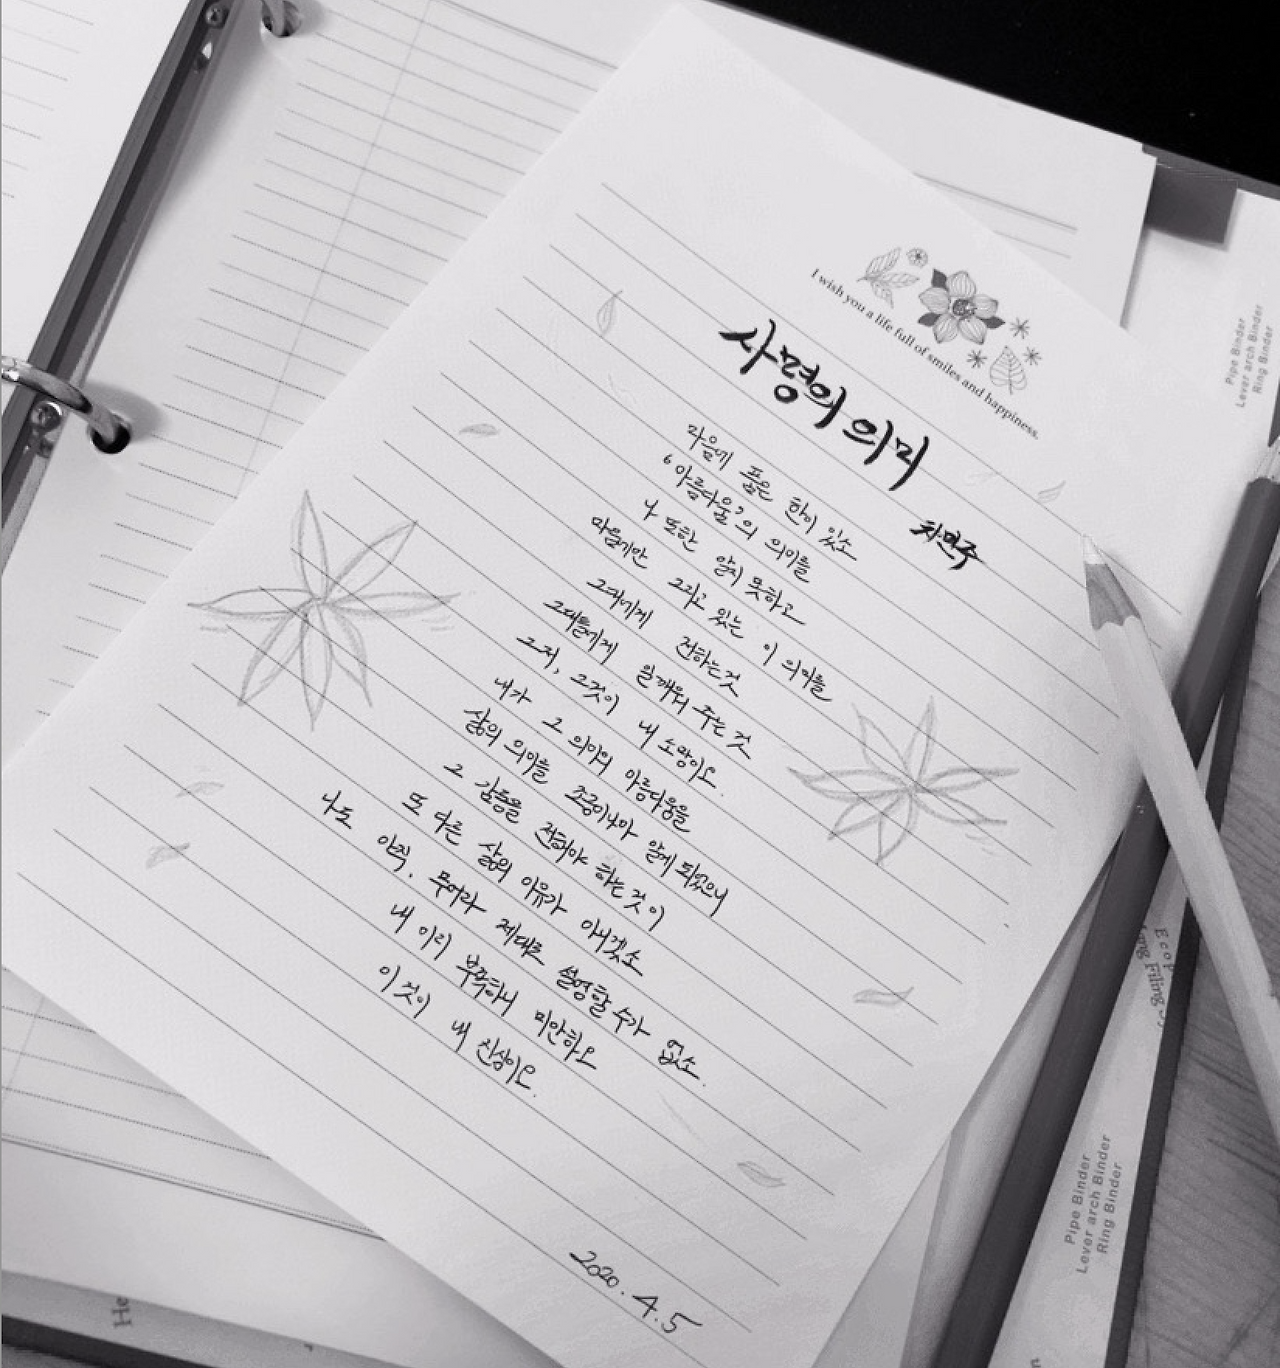 I wish you a life full of smiles and happiness.
사명의 의미
차민주
마음에 품은 한이 있소
'아름다울'의 의미를
나 또한 알지 못하고
마음에만 그리고 있는 이 의미를
그대에게 전하는 것
그대들에게 일깨워 주는 것
그저, 그것이 내 소망이오.
내가 그 의미의 아름다움을
삶의 의미를 조금이나마 알게 되었으니
그 감동을 전해야 하는 것이
또 다른 삶의 이유가 아니겠소
나도 아직, 무어라 제대로 설명할 수가 없소.
내 머리 부족하니 미안하오
이것이 내 진심이오.
2020. 4. 5
Pipe Binder
Lever arch Binder
Ring Binder
Pipe Binder
Lever arch Binder
Ring Binder
He